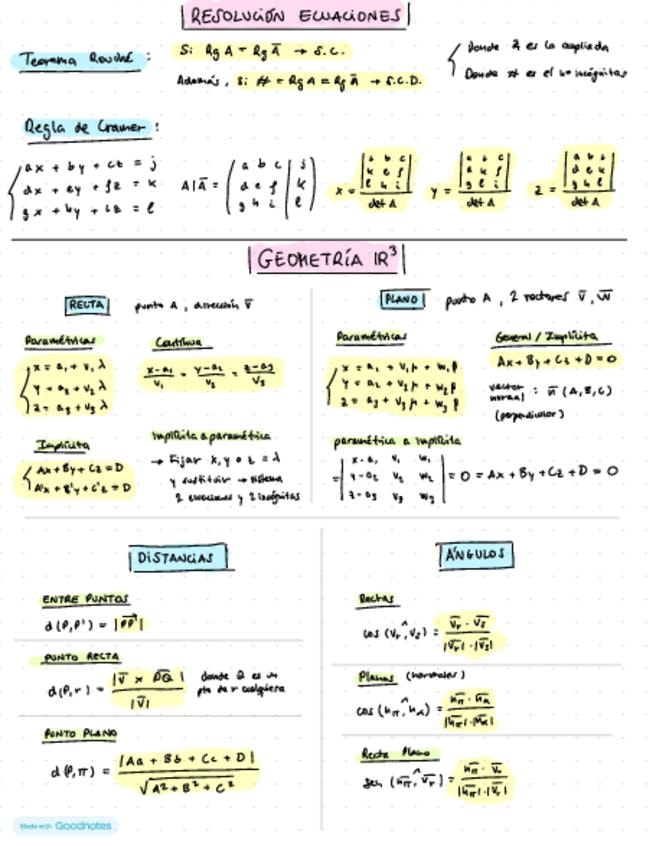 RESOLUCIÓN ECUACIONES
Teorema Rouché :
Si Rg A = Rg Ā → S.C.
Además, si # = Rg A = Rg Ā → S.C.D.
Donde Ā es la ampliada
Donde # es el nº incógnitas
Regla de Cramer :
ax + by + cz = j
dx + ey + fz = k
gx + hy + iz = l
A|Ā =
a b c | j
d e f | k
g h i | l
x = det A
y = det A
z = det A
GEOMETRÍA IR³
RECTA punto A , dirección v̄
Paramétricas
x = a₁ + v₁ λ
y = a₂ + v₂ λ
z = a₃ + v₃ λ
Continua
x-a₁/v₁ = y-a₂/v₂ = z-a₃/v₃
Implícita
Ax + By + Cz = D
A'x + B'y + C'z = D
Implícita a paramétrica
→ Fijar x, y o z = λ
y sustituir → sistema
2 ecuaciones y 2 incógnitas
PLANO punto A , 2 vectores v̄ , w̄
Paramétricas
x = a₁ + v₁ μ + w₁ β
y = a₂ + v₂ μ + w₂ β
z = a₃ + v₃ μ + w₃ β
General / Implícita
Ax + By + Cz + D = 0
vector normal : n̄ (A, B, C)
(perpendicular)
paramétrica a implícita
x-a₁ v₁ w₁
= y-a₂ v₂ w₂ = 0 = Ax + By + Cz + D = 0
z-a₃ v₃ w₃
DISTANCIAS
ENTRE PUNTOS
d (P, P') = |PP'|
PUNTO RECTA
d (P, r) = |v̄ x PQ| / |v̄|
donde Q es un
pto de r cualquiera
PUNTO PLANO
d (P, π) = |Aa + Bb + Cc + D| / √A² + B² + C²
ÁNGULOS
Rectas
cos (v̄r, v̄s) = v̄r · v̄s / |v̄r| · |v̄s|
Planos (normales)
Recta Plano
sen (n̄π, v̄r) = n̄π · v̄r / |n̄π| · |v̄r|
Made with Goodnotes